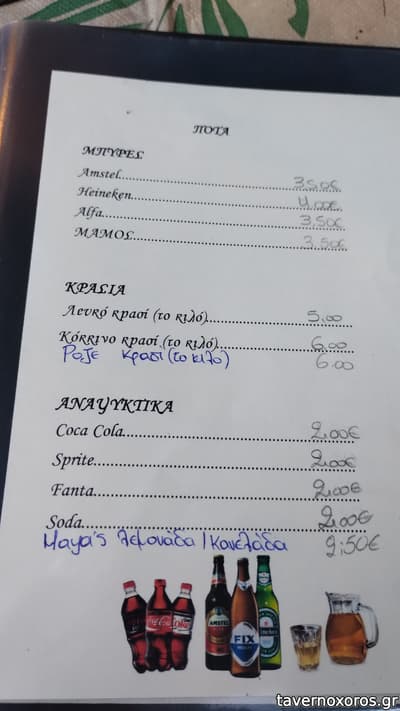 ΠΟΤΑ
ΜΠΥΡΕΣ
Amstel 3,50€
Heineken 4,00€
Alfa 3,50€
ΜΑΜΟΣ 3,50€
ΚΡΑΣΙΑ
Λευκό κρασί (το κιλό) 5,00
Κόκκινο κρασί (το κιλό) 6,00
Ροζε κρασί (το κιλό) 6.00
ΑΝΑΨΥΚΤΙΚΑ
Coca Cola 2,00€
Sprite 2,00€
Fanta 2,00€
Soda 2,00€
Maya's λεμονάδα / κανελάδα 2:50€
AMSTEL
FIX
Heineken
tavernoxoros.gr